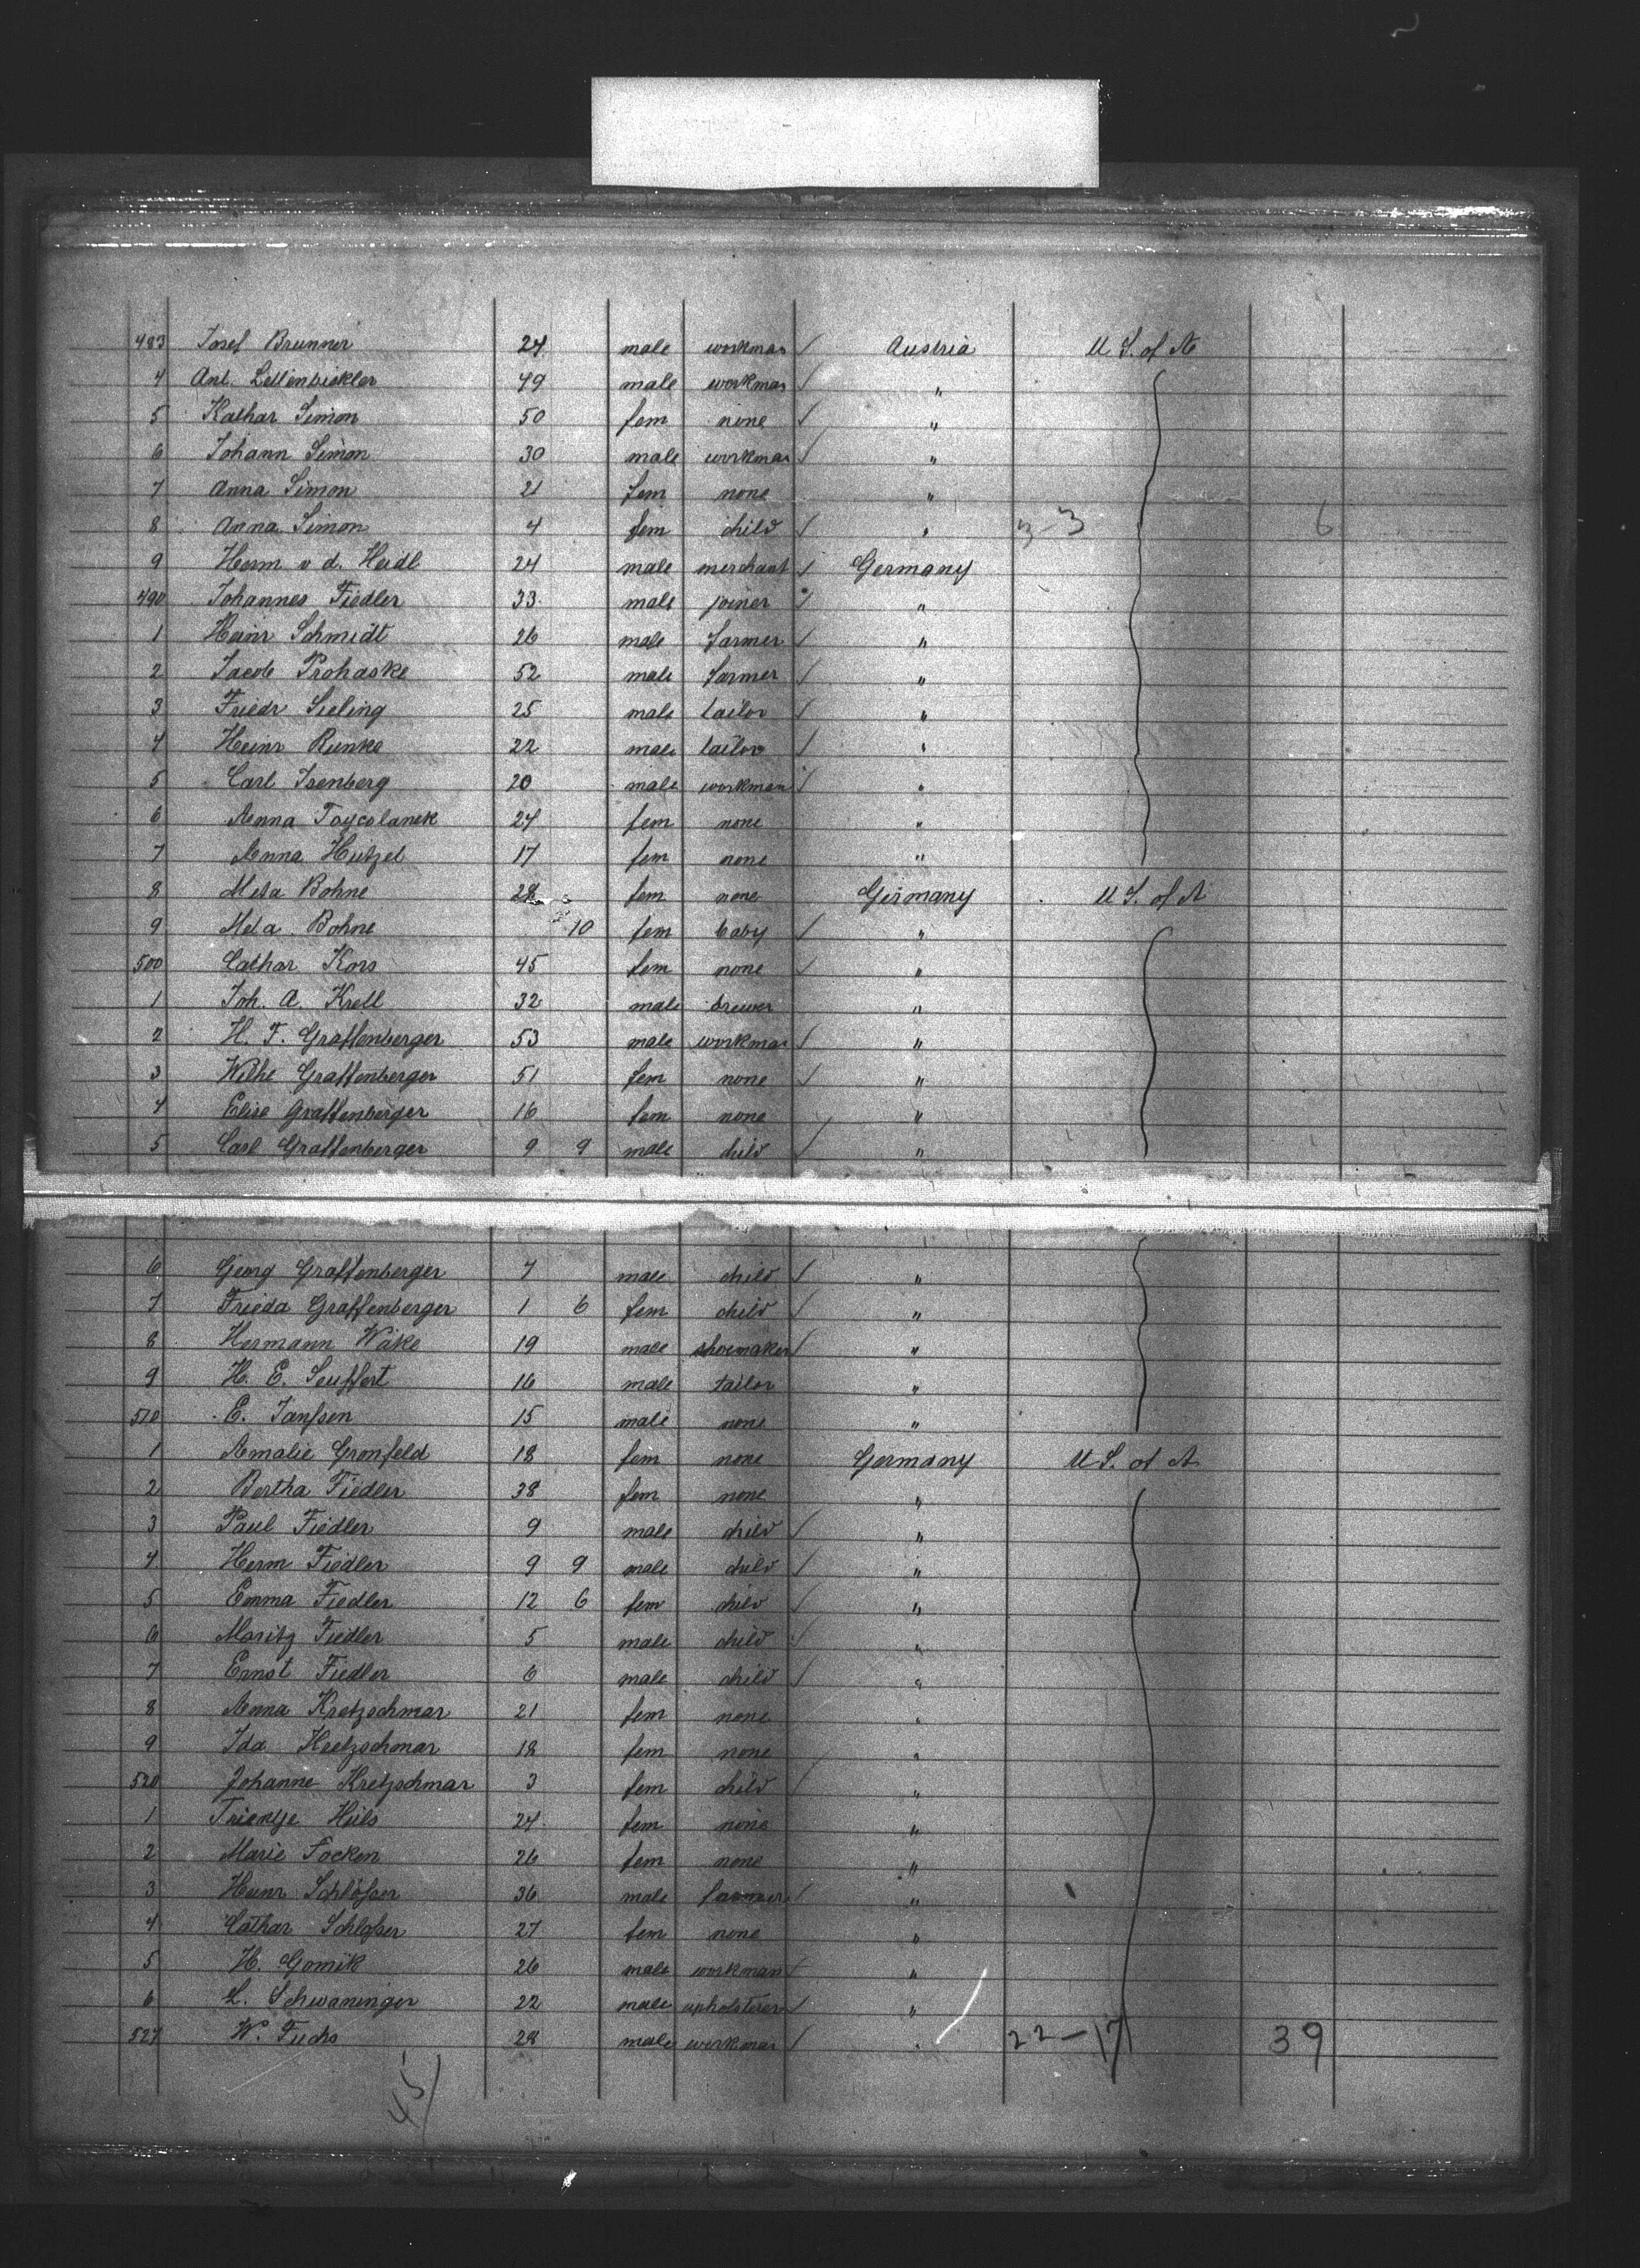 483 Josef Brunner 24 male workman / Austria U S. of A
4 Ant. 49 male workman / "
5 Kathar Simon 50 fem none / "
6 Johann Simon 30 male workman / "
7 Anna Simon 21 fem none "
8 Anna Simon 4 fem child / " 3-3 6
9 Herm v d. Heidl 24 male merchant / Germany
490 Johannes Fiedler 33 male joiner / "
1 Heinr Schmidt 26 male farmer / "
2 Jacob Prohaske 52 male farmer / "
3 Friedr Sieling 25 male tailor / "
4 Heinr Runke 22 male tailor / "
5 Carl Isenberg 20 male workman / "
6 Anna 24 fem none "
7 Anna Hutzel 17 fem none "
8 Meta Bohne 28 fem none Germany U S. of A
9 Meta Bohne 10 fem baby / "
500 Cathar Kors 45 fem none / "
1 Joh. A. Krell 32 male brewer "
2 H. F. Graffenberger 53 male workman / "
3 Wilhe Graffenberger 51 fem none / "
4 Elise Graffenberger 16 fem none "
5 Carl Graffenberger 9 9 male child / "
6 Georg Graffenberger 7 male child / "
7 Frieda Graffenberger 1 6 fem child / "
8 Hermann Wäke 19 male shoemaker / "
9 H. E. Seuffert 16 male tailor "
510 E. Janssen 15 male none "
1 Amalie Gronfeld 18 fem none Germany U S. of A
2 Bertha Fiedler 38 fem none "
3 Paul Fiedler 9 male child / "
4 Herm Fiedler 9 9 male child / "
5 Emma Fiedler 12 6 fem child / "
6 Moritz Fiedler 5 male child / "
7 Ernst Fiedler 6 male child / "
8 Anna Kretzschmar 21 fem none "
9 Ida Kretzschmar 18 fem none "
520 Johanne Kretzschmar 3 fem child / "
1 Trientje Hüls 24 fem none "
2 Marie Focken 26 fem none "
3 Heinr Schlösser 36 male farmer / "
4 Cathar Schlosser 27 fem none "
5 H. Gomik 26 male workman / "
6 L. Schwaninger 22 male upholsterer / "
527 W. Fuchs 28 male workman / " 22-17 39
45/